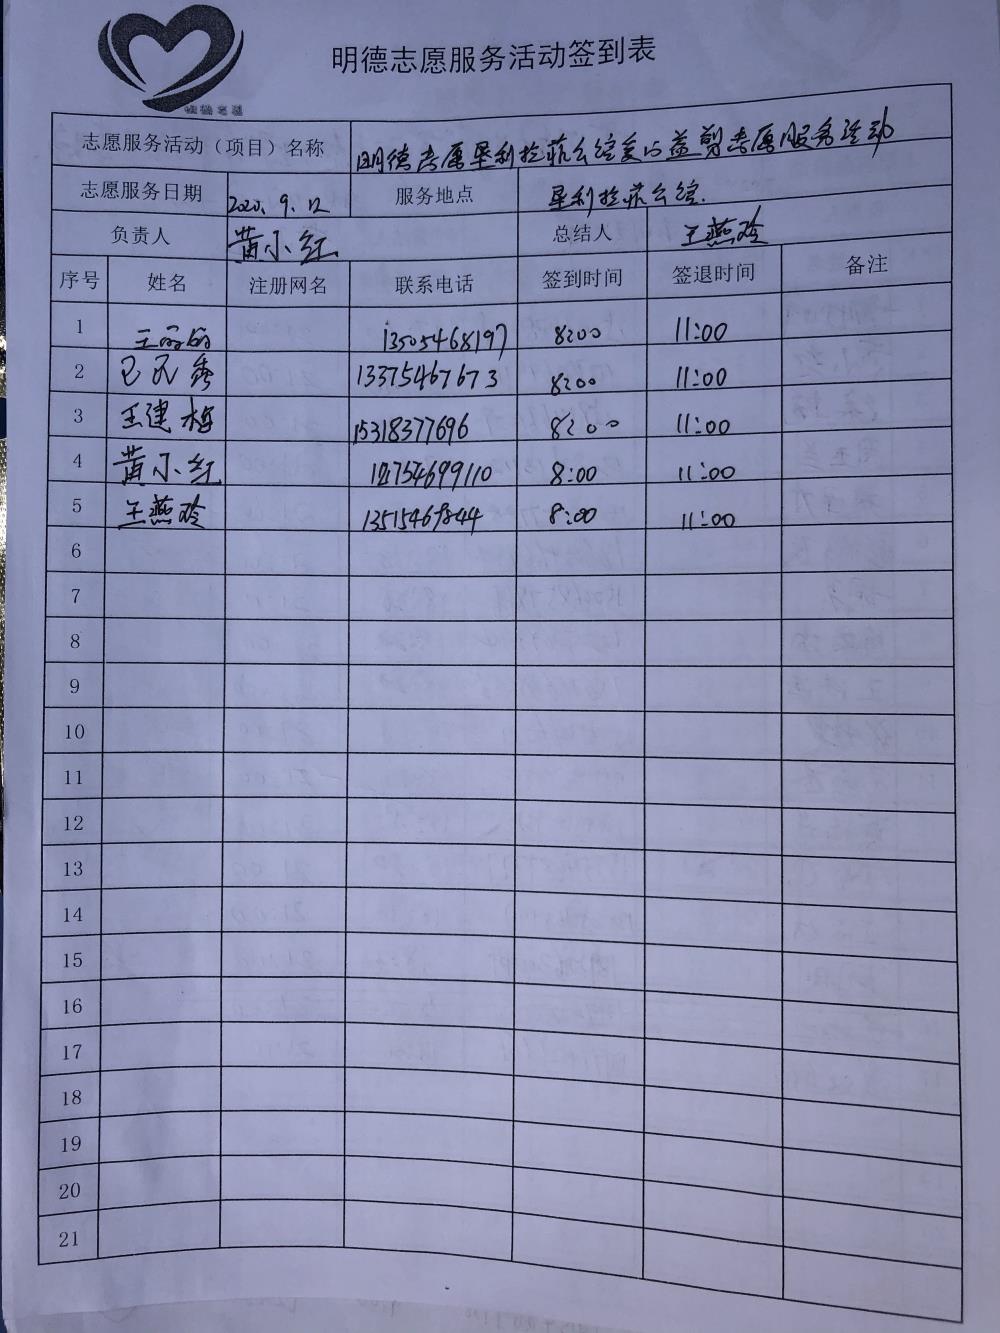 明德志愿
明德志愿服务活动签到表
志愿服务活动（项目）名称 明德志愿垦利拉菲公馆爱心益剪志愿服务活动
志愿服务日期 2020.9.12 服务地点 垦利拉菲公馆.
负责人 黄小红 总结人 王燕玲
序号 姓名 注册网名 联系电话 签到时间 签退时间 备注
1 13505468197 8:00 11:00
2 13375467673 8:00 11:00
3 王建梅 15318377696 8:00 11:00
4 黄小红 8:00 11:00
5 王燕玲 8:00 11:00
6
7
8
9
10
11
12
13
14
15
16
17
18
19
20
21